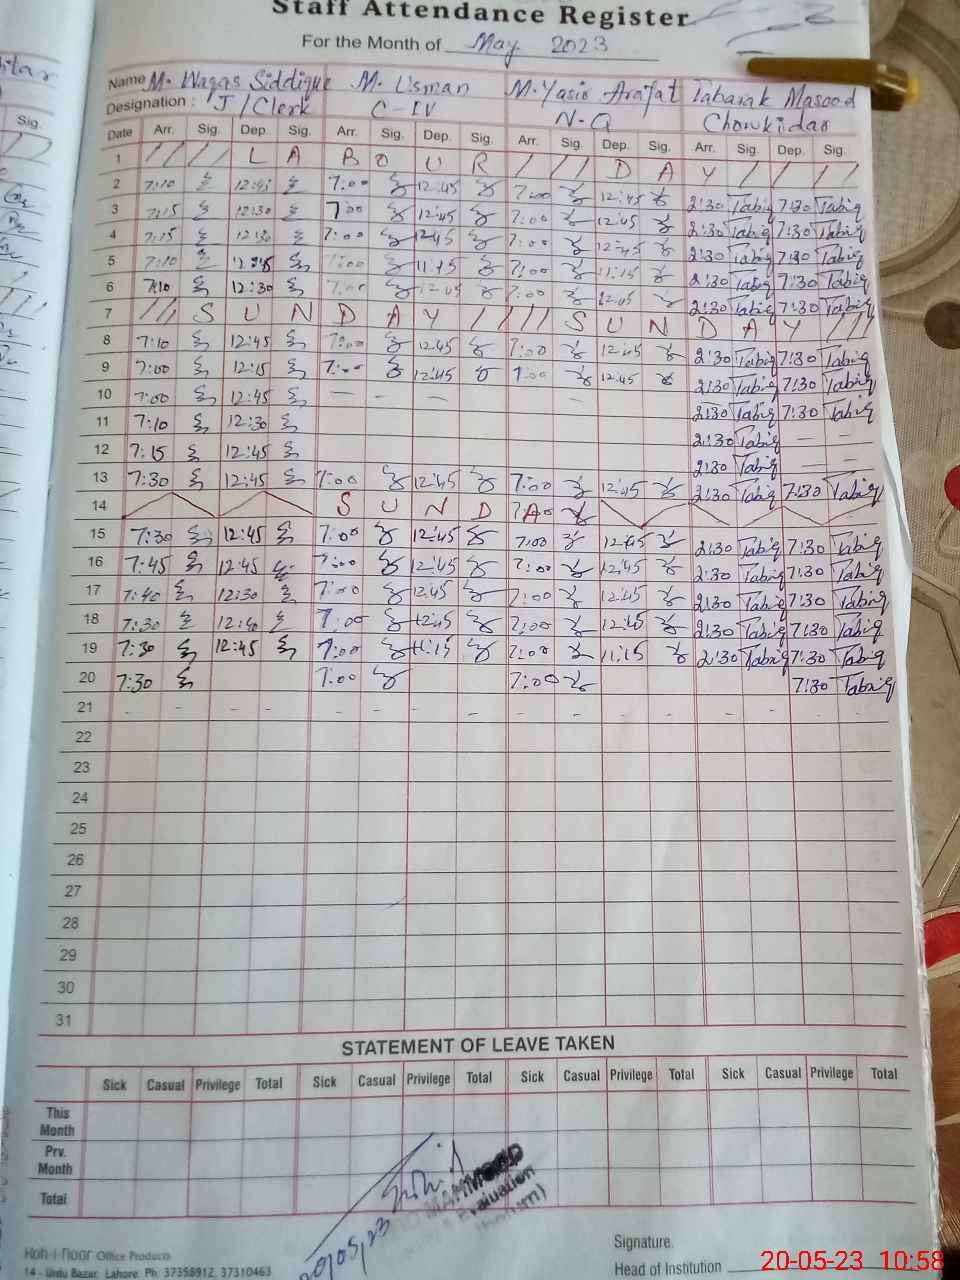 Staff Attendance Register
For the Month of May 2023
Name M. Waqas Siddique M. Usman M. Yasir Arafat Tabarak Masood
Designation : J/Clerk C-IV N-Q Chowkidar
Date Arr. Sig. Dep. Sig. Arr. Sig. Dep. Sig. Arr. Sig. Dep. Sig. Arr. Sig. Dep. Sig.
1 L A B O U R D A Y
2 7:10 12:45 7:00 12:45 7:00 12:45 2:30 Tabiq 7:30 Tabiq
3 7:15 12:30 7:00 12:45 7:00 12:45 2:30 Tabiq 7:30 Tabiq
4 7:15 12:30 7:00 12:45 7:00 12:45 2:30 Tabiq 7:30 Tabiq
5 7:10 12:45 7:00 11:15 7:00 11:15 2:30 Tabiq 7:30 Tabiq
6 7:10 12:30 7:00 12:45 7:00 12:45 2:30 Tabiq 7:30 Tabiq
7 S U N D A Y S U N D A Y
8 7:10 12:45 7:00 12:45 7:00 12:45 2:30 Tabiq 7:30 Tabiq
9 7:00 12:15 7:00 12:45 7:00 12:45 2:30 Tabiq 7:30 Tabiq
10 7:00 12:45 — — — — – 2:30 Tabiq 7:30 Tabiq
11 7:10 12:30 2:30 Tabiq — —
12 7:15 12:45 2:30 Tabiq — —
13 7:30 12:45 7:00 12:45 7:00 12:45 2:30 Tabiq 7:30 Tabiq
14 S U N D A Y
15 7:30 12:45 7:00 12:45 7:00 12:45 2:30 Tabiq 7:30 Tabiq
16 7:45 12:45 7:00 12:45 7:00 12:45 2:30 Tabiq 7:30 Tabiq
17 7:40 12:30 7:00 12:45 7:00 12:45 2:30 Tabiq 7:30 Tabiq
18 7:30 12:40 7:00 12:45 7:00 12:45 2:30 Tabiq 7:30 Tabiq
19 7:30 12:45 7:00 11:15 7:00 11:15 2:30 Tabiq 7:30 Tabiq
20 7:30 7:00 7:00 7:30 Tabiq
21
22
23
24
25
26
27
28
29
30
31
STATEMENT OF LEAVE TAKEN
Sick Casual Privilege Total Sick Casual Privilege Total Sick Casual Privilege Total Sick Casual Privilege Total
This Month
Prv. Month
Total
20/05/23
MAHMOOD
Evaluation
Signature.
Head of Institution
Koh-i-Noor Office Products
14 - Urdu Bazar, Lahore. Ph: 37358912, 37310463
20-05-23 10:58